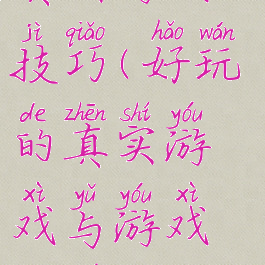 jì qiǎo hǎo wán
技巧(好玩
de zhēn shí yóu
的真实游
xì yǔ yóu xì
戏与游戏